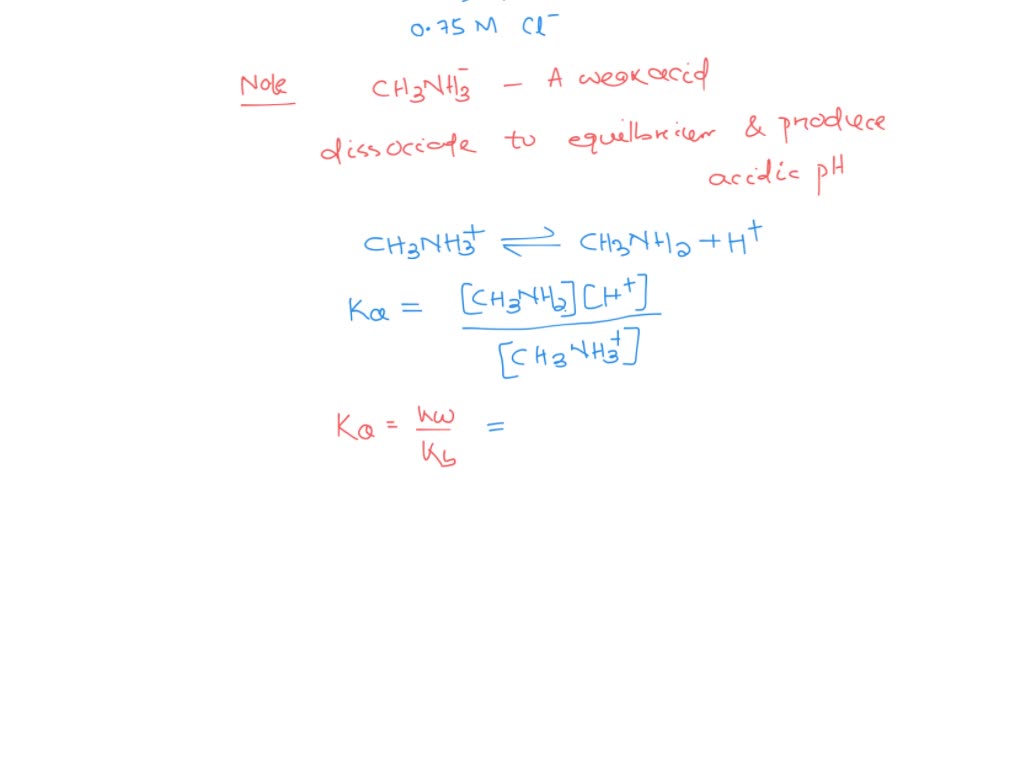 0.75 M Cl⁻
Note CH₃NH₃⁻ – A weak acid
dissociate to equilbrium & produce
acidic pH
CH₃NH₃⁺ ⇌ CH₃NH₂ + H⁺
Ka = [CH₃NH₂][H⁺] / [CH₃NH₃⁺]
Ka = kw / Kb =